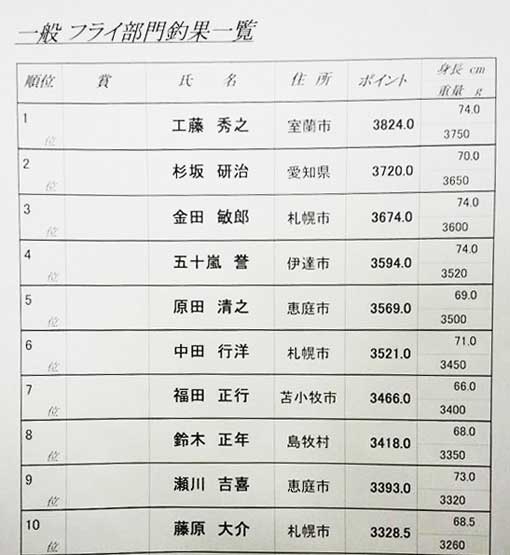 一般 フライ部門釣果一覧
順位 賞 氏 名 住 所 ポイント 身長 cm
重量 g
1位 工藤 秀之 室蘭市 3824.0 74.0
3750
2位 杉坂 研治 愛知県 3720.0 70.0
3650
3位 金田 敏郎 札幌市 3674.0 74.0
3600
4位 五十嵐 誉 伊達市 3594.0 74.0
3520
5位 原田 清之 恵庭市 3569.0 69.0
3500
6位 中田 行洋 札幌市 3521.0 71.0
3450
7位 福田 正行 苫小牧市 3466.0 66.0
3400
8位 鈴木 正年 島牧村 3418.0 68.0
3350
9位 瀬川 吉喜 恵庭市 3393.0 73.0
3320
10位 藤原 大介 札幌市 3328.5 68.5
3260